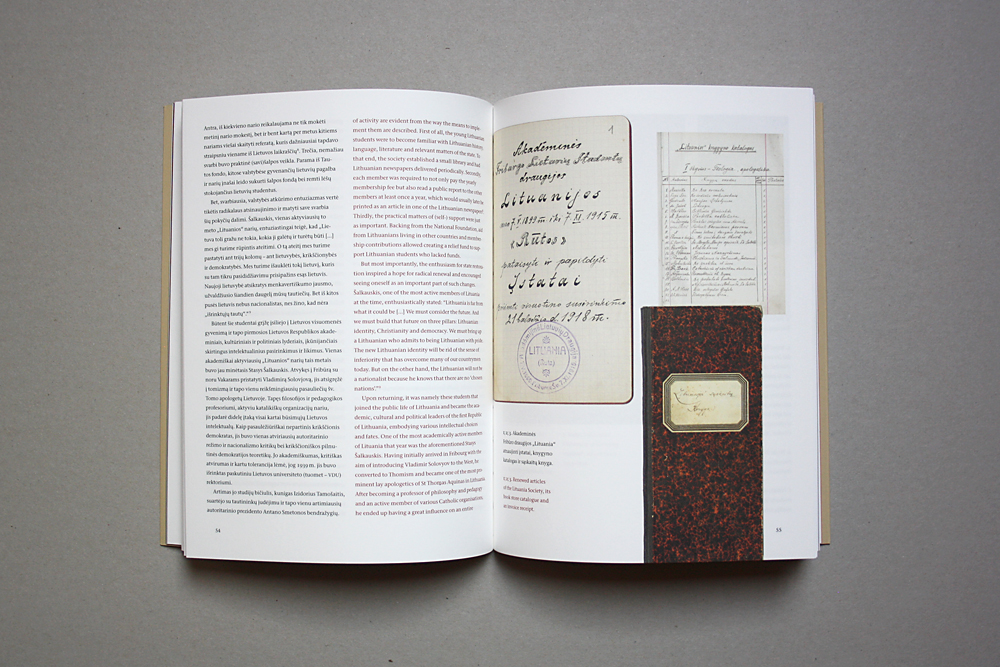 Antra, iš kiekvieno nario reikalaujama ne tik mokėti
metinį nario mokestį, bet ir bent kartą per metus kitiems
nariams viešai skaityti referatą, kuris dažniausiai tapdavo
straipsniu viename iš Lietuvos laikraščių. Trečia, nemažiau
svarbi buvo praktinė (savi)šalpos veikla. Parama iš Tau-
tos fondo, kitose valstybėse gyvenančių lietuvių pagalba
ir narių įnašai leido sukurti šalpos fondą bei remti lėšų
stokojančius lietuvių studentus.
Bet, svarbiausia, valstybės atkūrimo entuziazmas vertė
tikėtis radikalaus atsinaujinimo ir matyti save svarbia
tokių pokyčių dalimi. Šalkauskis, vienas aktyviausių to
meto „Lituanios“ narių, entuziastingai teigė, kad „Lie-
tuva toli gražu ne tokia, kokia ji galėtų ir turėtų būti [...]
mes gi turime rūpintis ateitimi. O tą ateitį mes turime
pastatyti ant trijų kolonų – ant lietuvybės, krikščionybės
ir demokratybės. Mes turime išauklėti tokį lietuvį, kuris
su tam tikru pasididžiavimu prisipažins esąs lietuvis.
Naujoji lietuvybė atsikratys menkavertiškumo jausmo,
užvaldžiusio šiandien daugelį mūsų tautiečių. Bet iš kitos
pusės lietuvis nebus nacionalistas, nes žino, kad nėra
„išrinktųjų tautų“.“
Būtent šie studentai grįžę įsiliejo į Lietuvos visuomenės
gyvenimą ir tapo pirmosios Lietuvos Respublikos akade-
miniais, kultūriniais ir politiniais lyderiais, įkūnijančiais
skirtingus intelektualinius pasirinkimus ir likimus. Vienas
akademiškai aktyviausių „Lituanios“ narių tais metais
buvo jau minėtasis Stasys Šalkauskis. Atvykęs į Fribūrą su
noru Vakarams pristatyti Vladimirą Solovjovą, jis atsigręžė
į tomizmą ir tapo vienu reikšmingiausių pasauliečių šv.
Tomo apologetų Lietuvoje. Tapęs filosofijos ir pedagogikos
profesoriumi, aktyviu katalikiškų organizacijų nariu,
jis padarė didelę įtaką visai kartai būsimųjų Lietuvos
intelektualų. Kaip pasaulėžiūriškai nepartinis krikščionis
demokratas, jis buvo vienas atviriausių autoritarinio
režimo ir nacionalizmo kritikų bei krikščioniškos pilnu-
tinės demokratijos teoretikų. Jo akademiškumas, kritiškas
atvirumas ir kartu tolerancija lėmė, jog 1939 m. jis buvo
išrinktas paskutiniu Lietuvos universiteto (tuomet – VDU)
rektoriumi.
Artimas jo studijų bičiulis, kunigas Izidorius Tamošaitis,
suartėjo su tautininkų judėjimu ir tapo vienu artimiausių
autoritarinio prezidento Antano Smetonos bendražygių.
54
of activity are evident from the way the means to imple-
ment them are described. First of all, the young Lithuanian
students were to become familiar with Lithuanian history,
language, literature and relevant matters of the state. To
that end, the society established a small library and had
Lithuanian newspapers delivered periodically. Secondly,
each member was required to not only pay the yearly
membership fee but also read a public report to the other
members at least once a year, which would usually later be
printed as an article in one of the Lithuanian newspapers.
Thirdly, the practical matters of (self-) support were just
as important. Backing from the National Foundation, aid
from Lithuanians living in other countries and member-
ship contributions allowed creating a relief fund to sup-
port Lithuanian students who lacked funds.
But most importantly, the enthusiasm for state restora-
tion inspired a hope for radical renewal and encouraged
seeing oneself as an important part of such change.
Šalkauskis, one of the most active members of Lituania
at the time, enthusiastically stated: “Lituania is far from
what it could be [...] We must consider the future. And
we must build that future on three pillars: Lithuanian
identity, Christianity and democracy. We must bring up
a Lithuanian who admits to being Lithuanian with pride.
The new Lithuanian identity will be rid of the sense of
inferiority that has overcome many of our countrymen
today. But on the other hand, the Lithuanian will not be
a nationalist because he knows that there are no ‘chosen
nations’.”
Upon returning, it was namely these students that
joined the public life of Lithuania and became the aca-
demic, cultural and political leaders of the first Republic
of Lithuania, embodying various intellectual choices
and fates. One of the most academically active members
of Lituania that year was the aforementioned Stasys
Šalkauskis. Having initially arrived in Fribourg with the
aim of introducing Vladimir Solovyov to the West, he
converted to Thomism and became one of the most pro-
minent lay apologetics of St Thomas Aquinas in Lithuania.
After becoming a professor of philosophy and pedagogy
and an active member of various Catholic organisations,
he ended up having a great influence on an entire
1
Akadėminės
Friburgo Lietuvių Studentų
draugijos
Lituanijos
«Rūtos»
pataisyti ir papildyti
Įstatai
1918 m.
LITUANIA
(Rūta)
„Lituanios“ knygyno katalogas
V.v.3. Akademinės
Fribūro draugijos „Lituania“
atnaujinti įstatai, knygyno
katalogas ir sąskaitų knyga.
V.v.3. Renewed articles
of the Lituania Society, its
book store catalogue and
an invoice receipt.
55